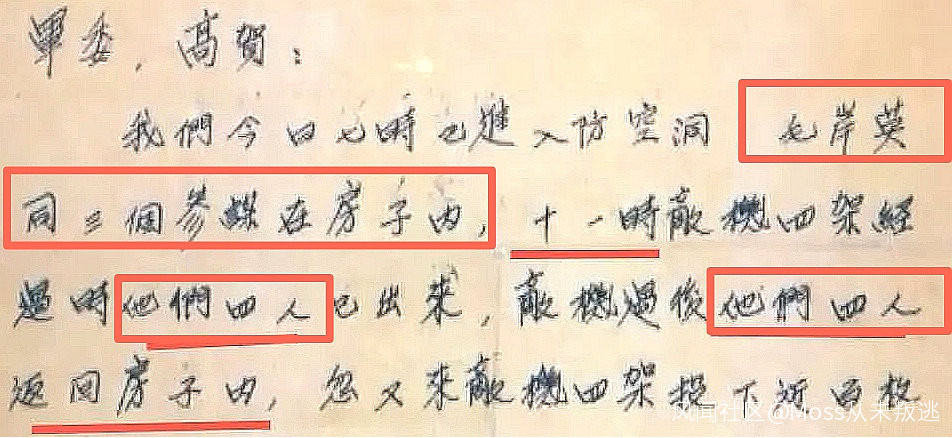 軍委，高賀：
我們今日七時已進入防空洞 毛岸英
同三個參謀在房子內，十一時敵機四架經
過時他們四人已出來，敵機過後他們四人
返回房子內，忽又來敵機四架投下近百枚
风闻社区@Moss从未叛逃